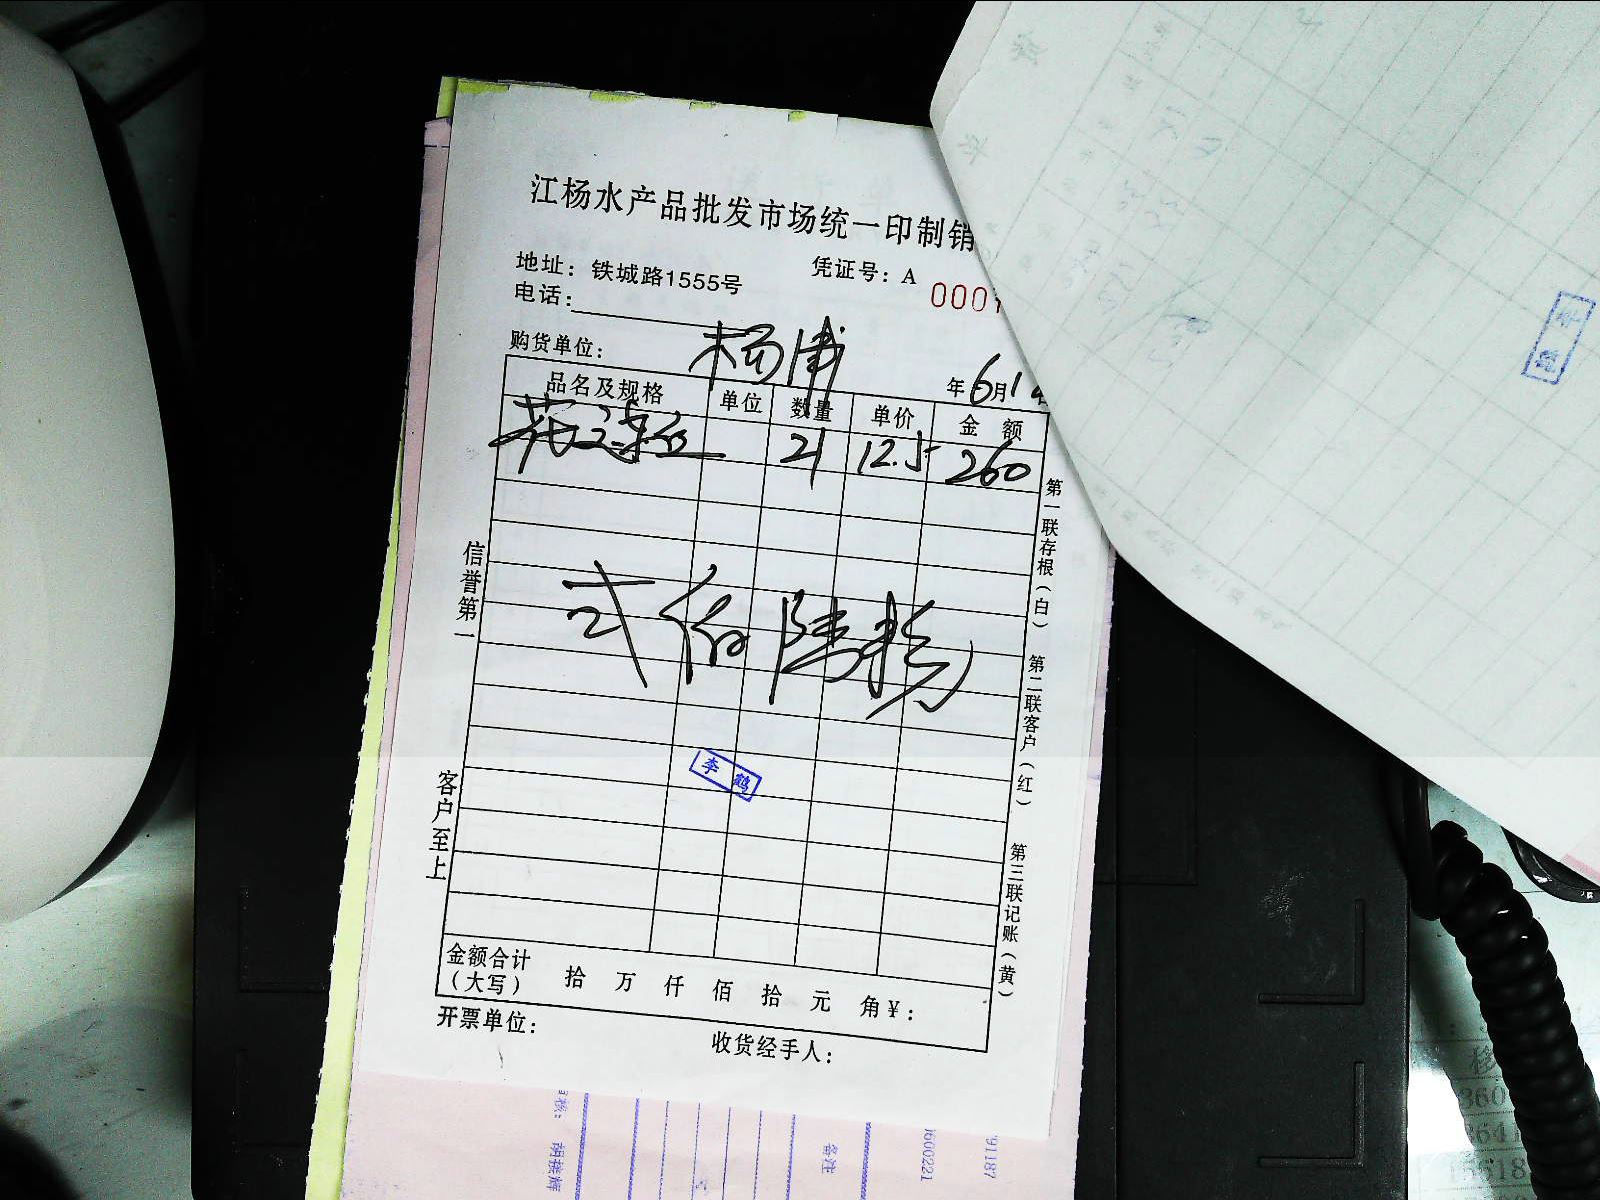 江杨水产品批发市场统一印制销
地址：铁城路1555号
凭证号：A 000
电话：
购货单位：
杨浦
年6月1
品名及规格 单位 数量 单价 金额
花 21 12.5 260
弍佰陆拾
李鹤
信誉第一
客户至上
第一联存根（白）
第二联客户（红）
第三联记账（黄）
金额合计
（大写） 拾 万 仟 佰 拾 元 角￥：
开票单位：
收货经手人：
备注
600221
91187